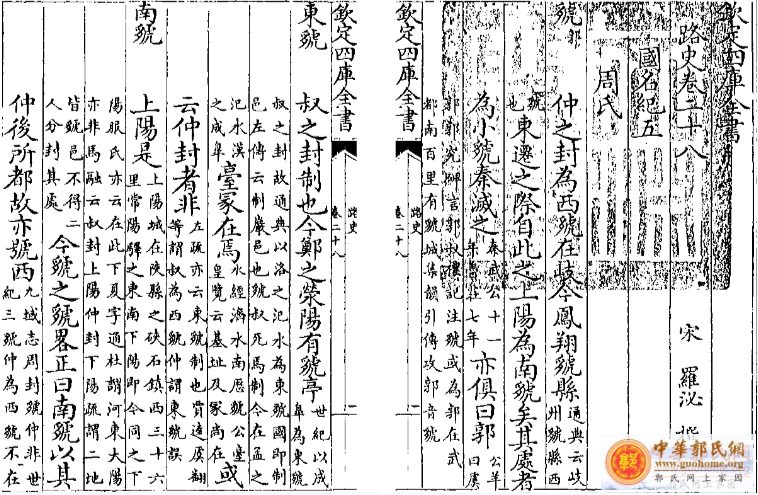 欽定四庫全書
路史卷二十八
宋 羅泌 撰
國名紀五
周氏
虢 郭
仲之封為西虢在岐今鳳翔虢縣 通典云岐州虢縣西
虢也 東遷之際自此之上陽為南虢矣其處者
為小虢秦滅之 秦武公十一 七年 亦俱曰郭 公羊曰虞
郭郭究碑言郭叔 記注虢或為郭在武
都南百里有虢城集韻引傳攻郭音虢
路史
卷二十八
一
欽定四庫全書
路史
卷二十八
二
東虢
叔之封制也今鄭之滎陽有虢亭 世紀以成皋為東虢
叔之封故通典以洛之汜水為東虢國即制
邑左傳云制巖邑也虢叔死焉制今在孟之
汜水漢之成皋 臺冢在焉 水經濟水南歷虢公臺皇覽云基址及冢尚在 或
云仲封者非 左疏亦云東虢制也賈逵虞翻等謂叔為西虢仲謂東虢誤
南虢
上陽是 上陽城在陜縣之硤石鎮西三十六里常陽驛之東南下陽即今同之下
陽服氏亦云在此下夏字通杜謂河東大陽
亦非馬融云叔封上陽仲封下陽疏謂二地
皆虢邑不得二人分封其處 今虢之虢略正曰南虢以其
仲後所都故亦號西 九域志周封虢仲非世紀三虢仲為西虢不在
中華郭氏網
www.guohome.org
郭氏网上家园